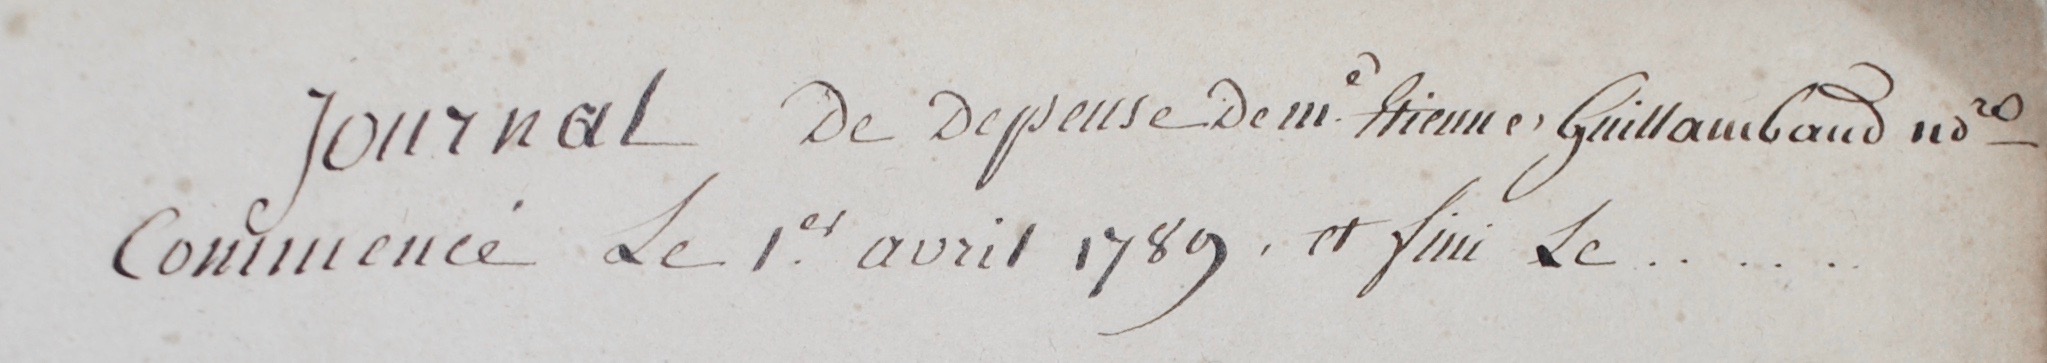 Journal De Depense De m.e Etienne Guillambaud no.re
Commencé Le 1.er avril 1789, et fini Le . . . . . .